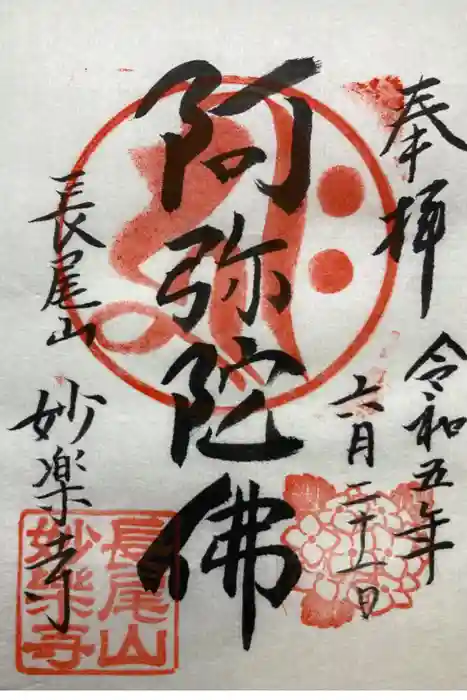 奉拝
令和五年
六月二十一日
阿弥陀佛
長尾山
妙楽寺
長尾山
妙樂寺